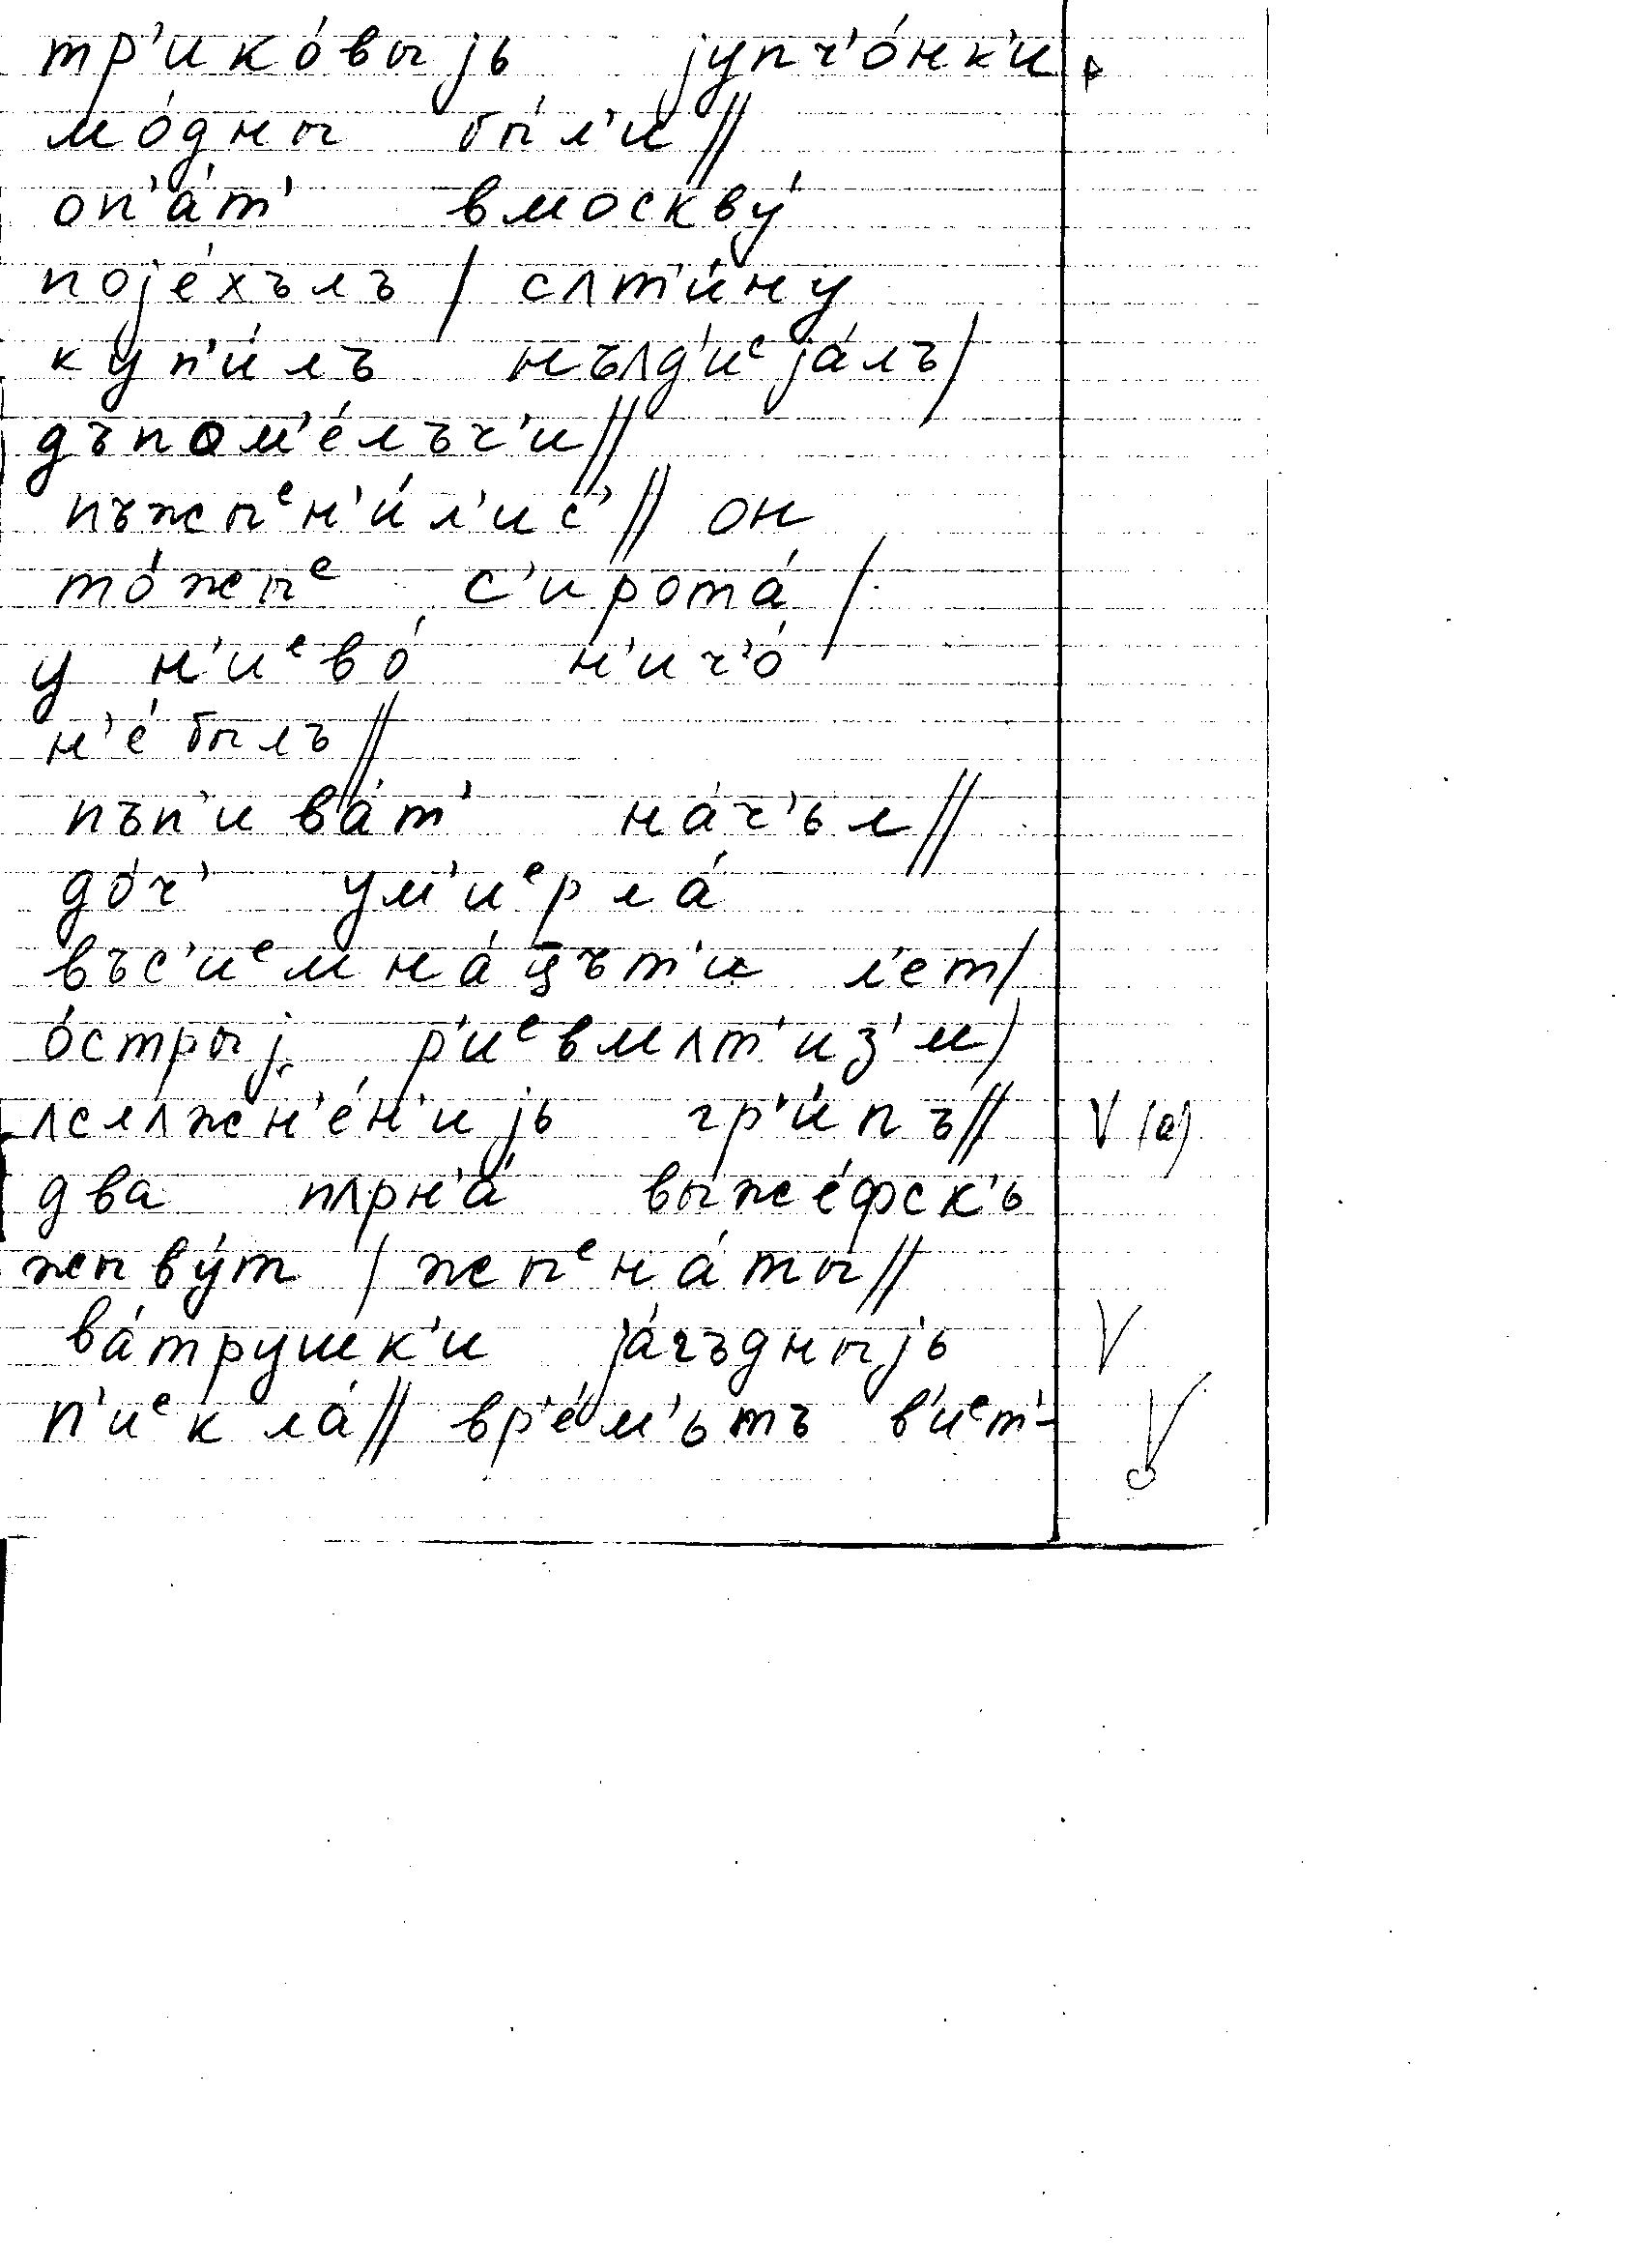 тр'ико́выјь јупч'о́нк'и
мо́дны бы́л'и //
оп'а́т' вмоскву́
поје́хълъ / сʌт'и́ну
куп'и́лъ нъʌд'иᵉја́лъ /
дъпом'е́лъч'и //
пъжыᵉн'и́л'ис' // он
то́жыᵉ с'ирота́ /
у н'иᵉво́ н'ич'о́
н'е́былъ //
пъп'ива́т' на́ч'ьл //
до́ч' ум'иᵉрла́
въс'иᵉмна́цът'и л'ет /
о́стрыј р'иᵉвмʌт'из'м /
ʌслʌжн'е́н'ијь гр'и́пъ // V (а)
два пʌрн'а́ выже́фск'ь
жыву́т / жыᵉна́ты //
ва́трушк'и ја́гъдныјь V
п'иᵉкла́ // вр'е́м'ьтъ в'иᵉт'- V